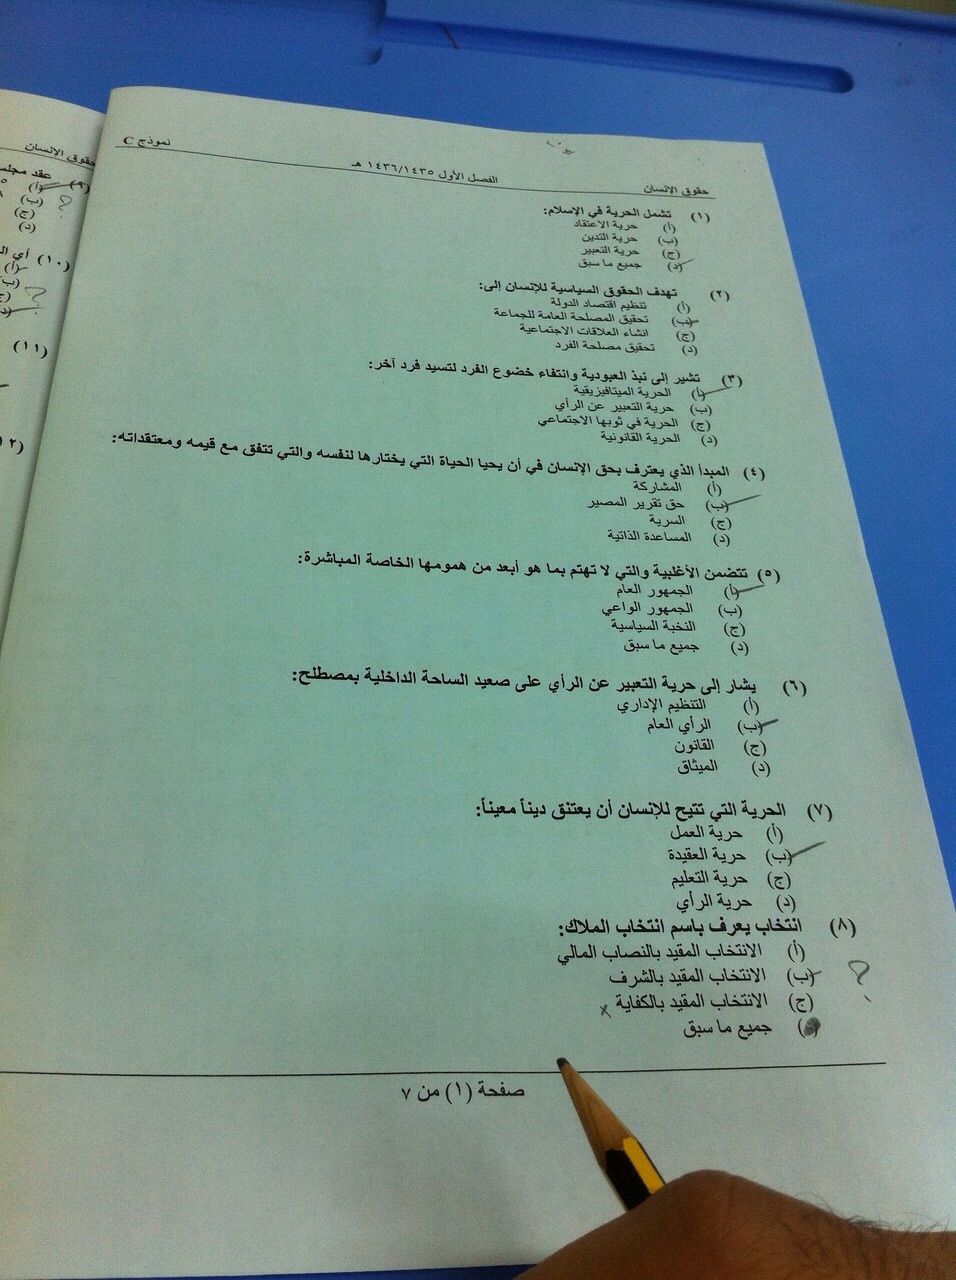 حقوق الإنسان
الفصل الأول ١٤٣٦/١٤٣٥ هـ
نموذج C
(١) تشمل الحرية في الإسلام:
(أ) حرية الاعتقاد
(ب) حرية التدين
(ج) حرية التعبير
(د) جميع ما سبق
(٢) تهدف الحقوق السياسية للإنسان إلى:
(أ) تنظيم اقتصاد الدولة
(ب) تحقيق المصلحة العامة للجماعة
(ج) انشاء العلاقات الاجتماعية
(د) تحقيق مصلحة الفرد
(٣) تشير إلى نبذ العبودية وانتفاء خضوع الفرد لتسيد فرد آخر:
(أ) الحرية الميتافيزيقية
(ب) حرية التعبير عن الرأي
(ج) الحرية في ثوبها الاجتماعي
(د) الحرية القانونية
(٤) المبدأ الذي يعترف بحق الإنسان في أن يحيا الحياة التي يختارها لنفسه والتي تتفق مع قيمه ومعتقداته:
(أ) المشاركة
(ب) حق تقرير المصير
(ج) السرية
(د) المساعدة الذاتية
(٥) تتضمن الأغلبية والتي لا تهتم بما هو أبعد من همومها الخاصة المباشرة:
(أ) الجمهور العام
(ب) الجمهور الواعي
(ج) النخبة السياسية
(د) جميع ما سبق
(٦) يشار إلى حرية التعبير عن الرأي على صعيد الساحة الداخلية بمصطلح:
(أ) التنظيم الإداري
(ب) الرأي العام
(ج) القانون
(د) الميثاق
(٧) الحرية التي تتيح للإنسان أن يعتنق ديناً معيناً:
(أ) حرية العمل
(ب) حرية العقيدة
(ج) حرية التعليم
(د) حرية الرأي
(٨) انتخاب يعرف باسم انتخاب الملاك:
(أ) الانتخاب المقيد بالنصاب المالي
(ب) الانتخاب المقيد بالشرف ؟
(ج) الانتخاب المقيد بالكفاية x
(د) جميع ما سبق
صفحة (١) من ٧
حقوق الإنسان
(٩) عقد مجلس
(أ)
(ب) ؟
(ج)
(د)
(١٠) أي ال
(أ)
(ب) ؟
(ج)
(د)
(١١)